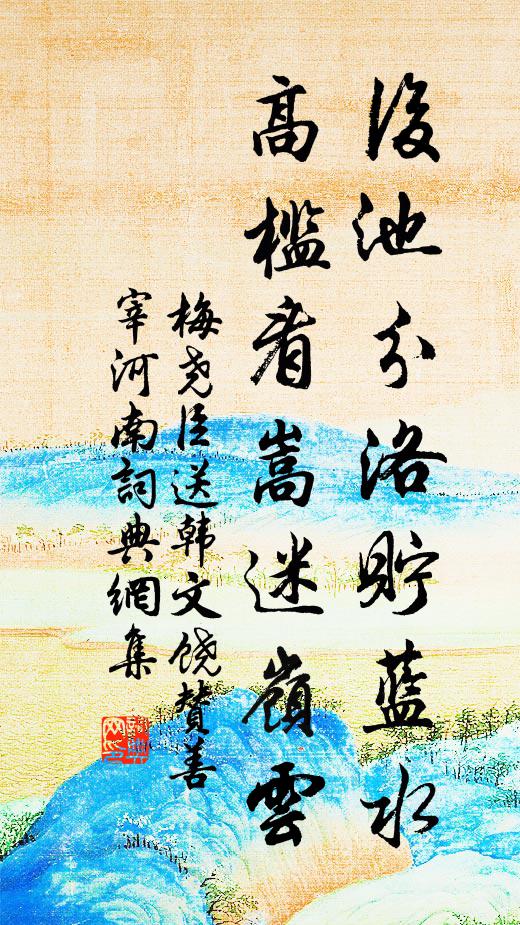 後池分洛貯藍水
高檻看嵩迷嶺雲
梅尧臣送韩文饶贊善
宰河南詞典網集